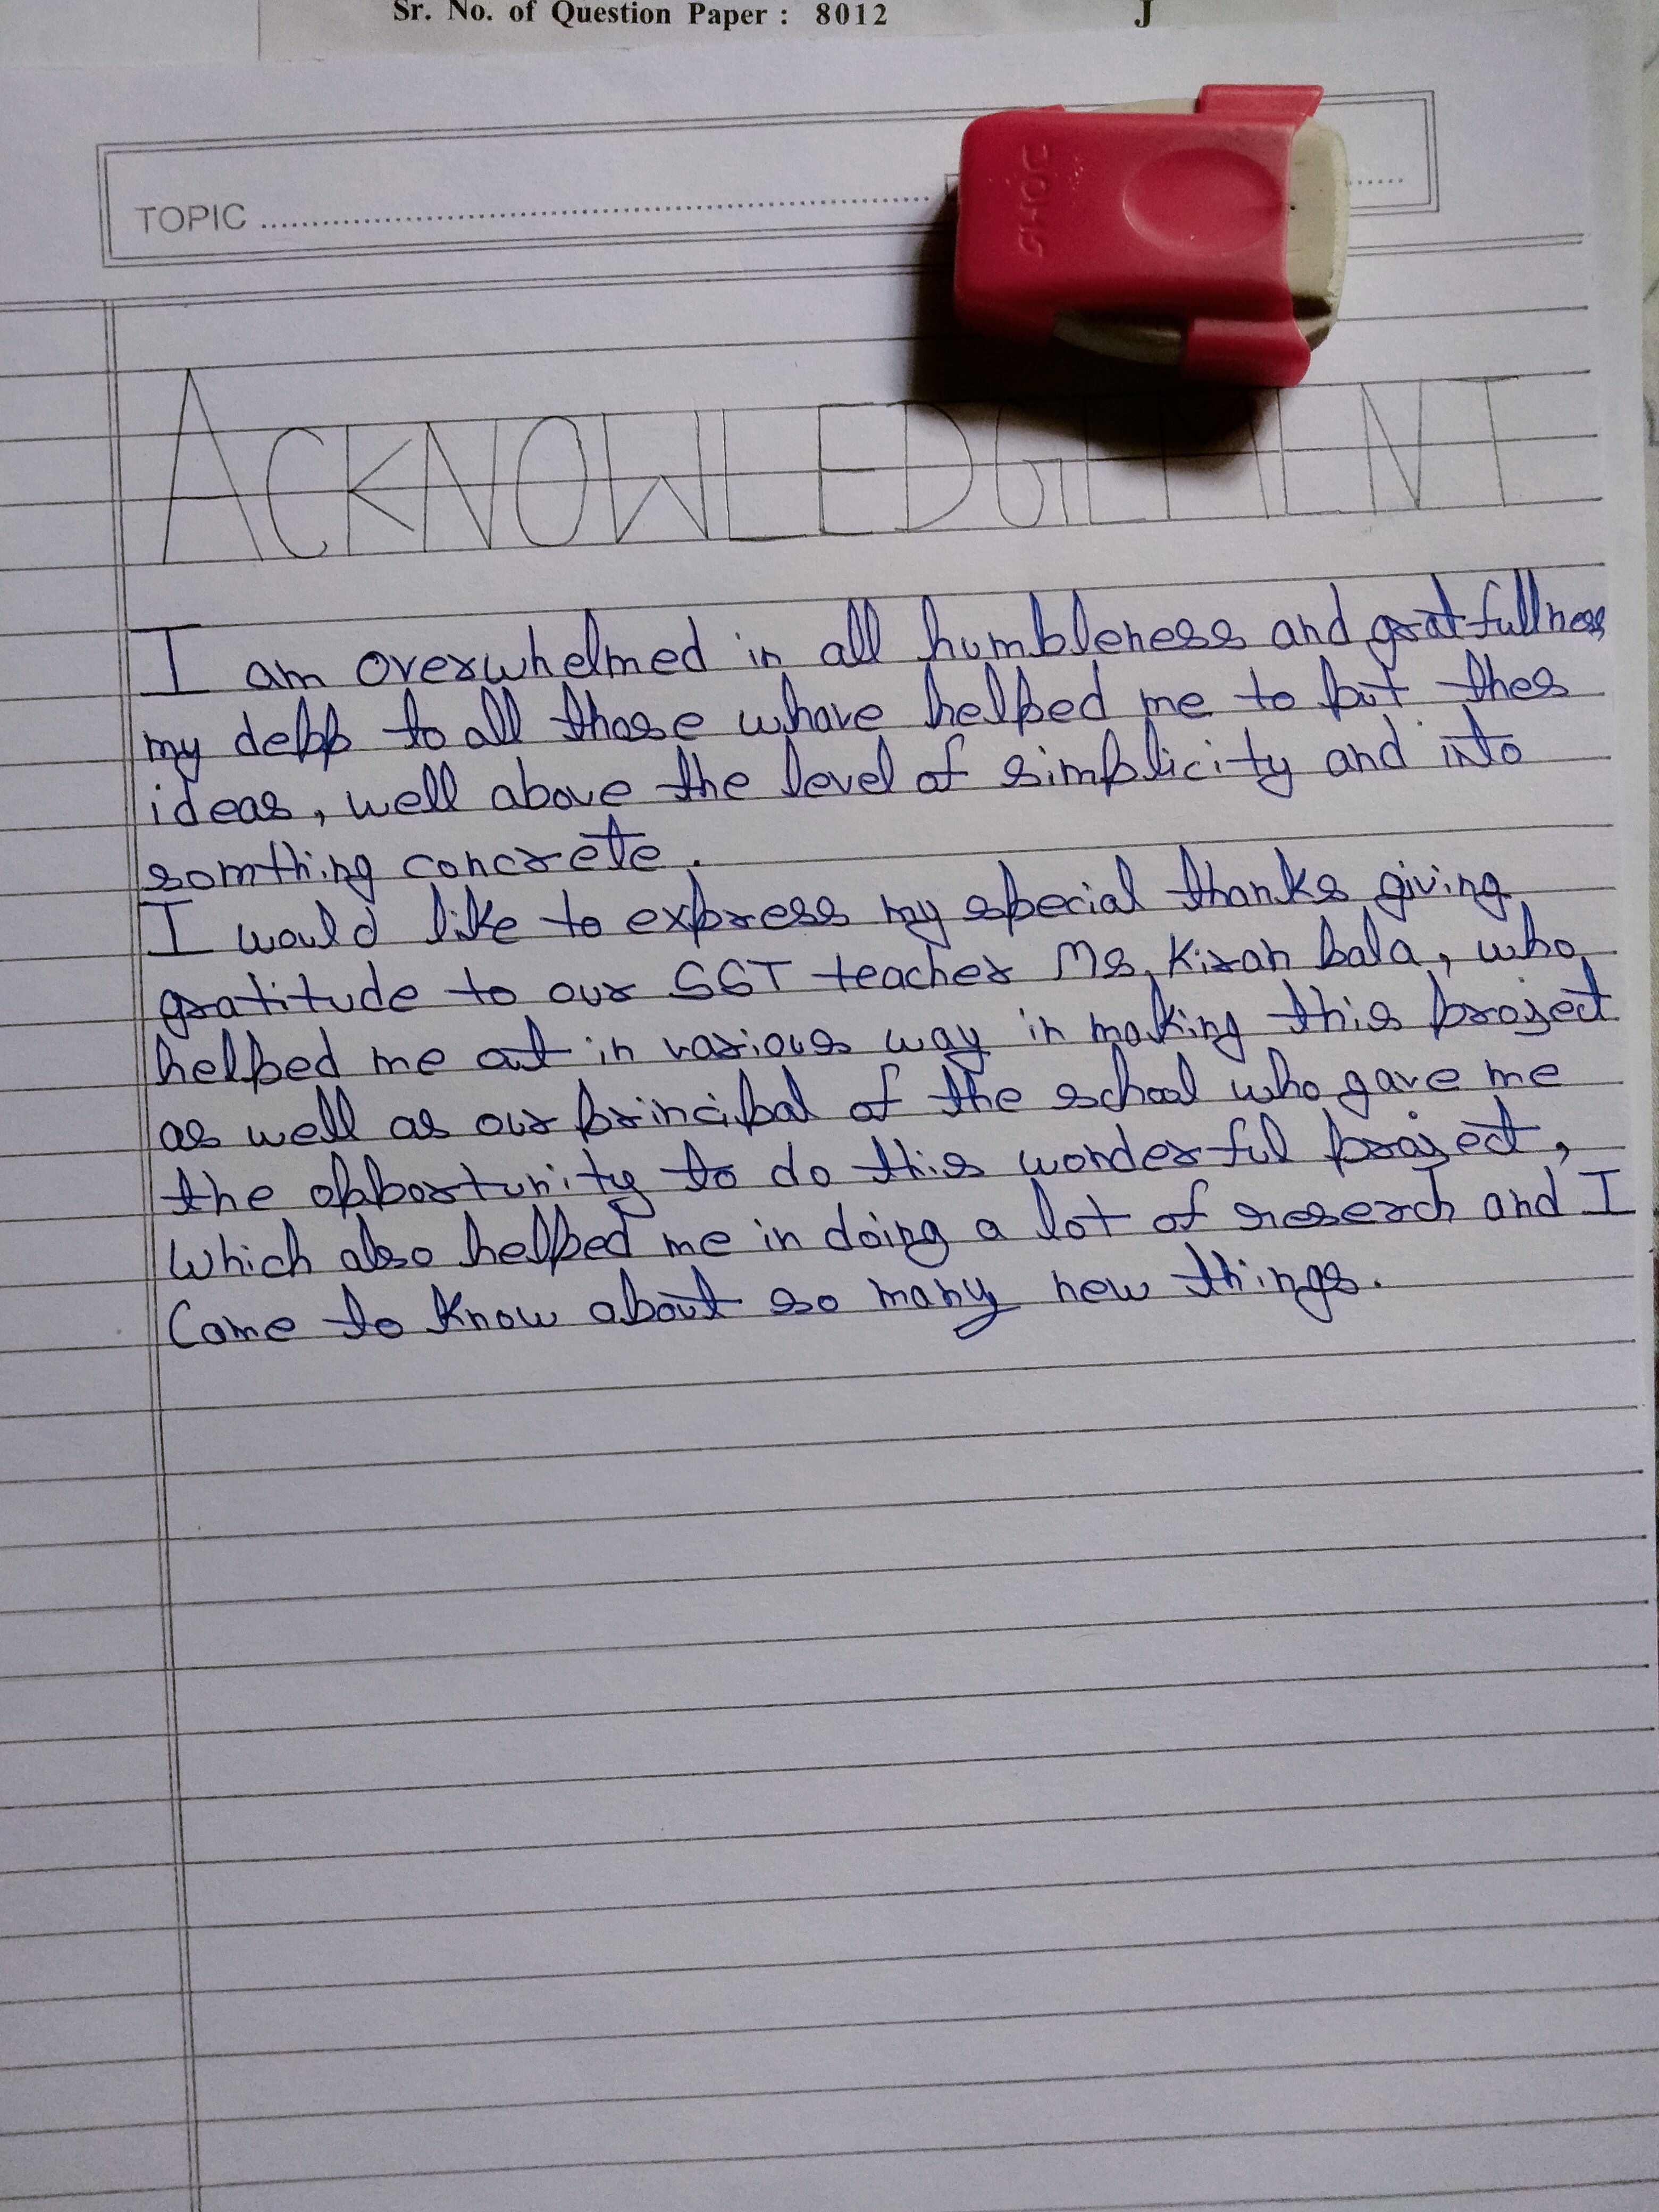 Sr. No. of Question Paper : 8012 J
TOPIC
DOMS
ACKNOWLEDGEMENT
I am overwhelmed in all humbleness and gratfullness
my debp to all those whave helped me to put thes
ideas, well above the level of simplicity and into
somthing concrete.
I would like to express my special thanks giving
gratitude to our SST teacher Ms. Kiran bala, who
helped me out in various way in making this project
as well as our principal of the school who gave me
the opportunity to do this wonderful project,
Which also helped me in doing a lot of reserch and I
Came to Know about so many new things.